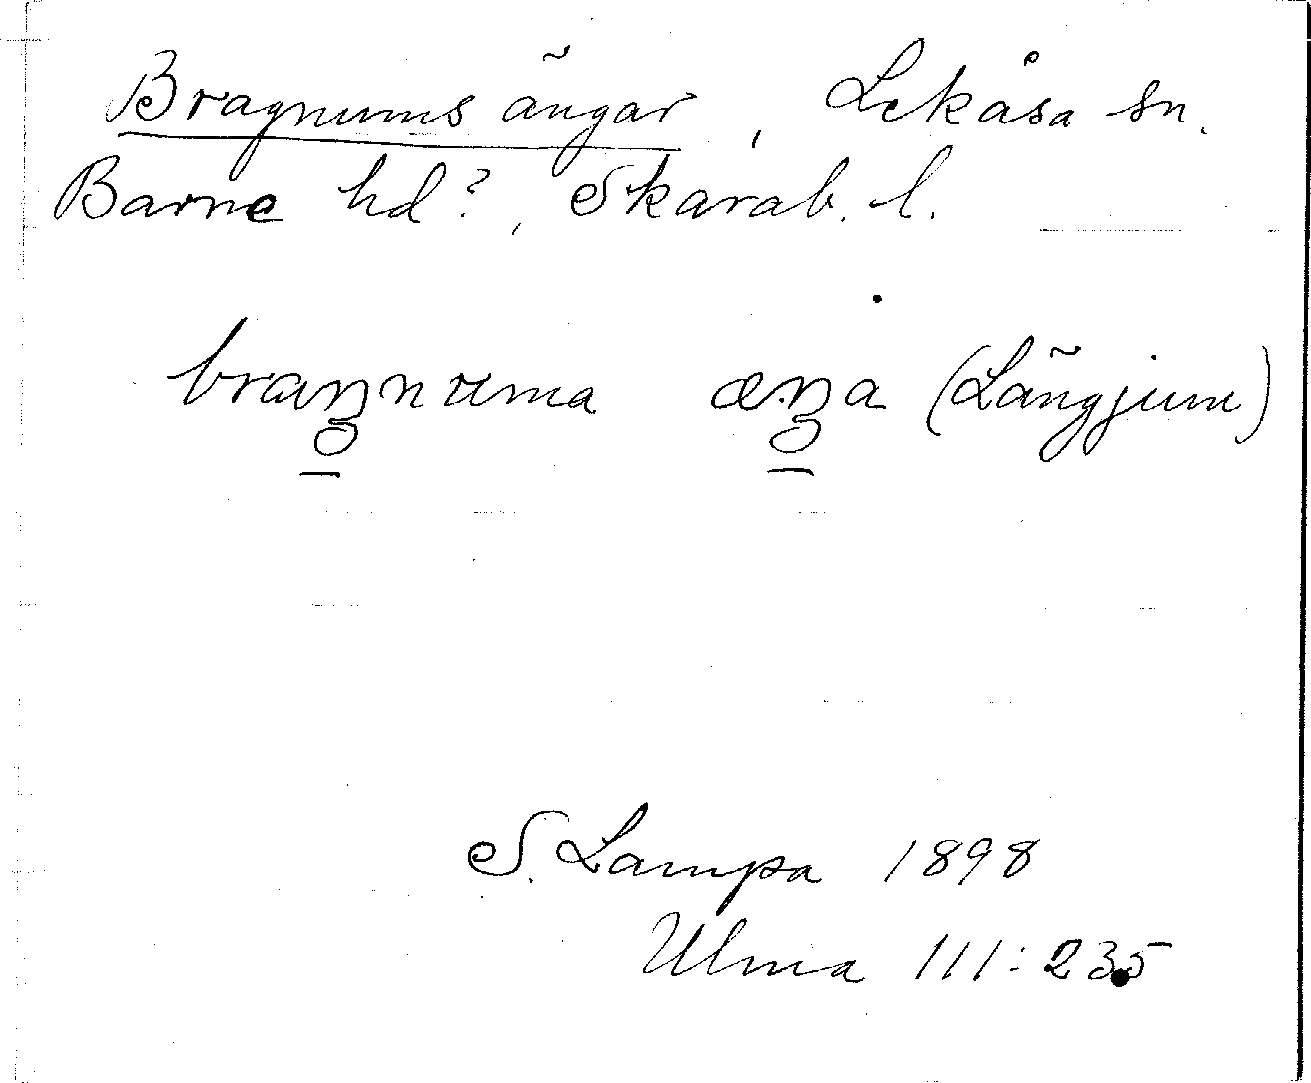 Bragnums ängar, Lekåsa sn.
Barne hd?, Skarab. l.
braŋnuma æŋa (Längjum)
S. Lampa 1898
Ulma 111:235